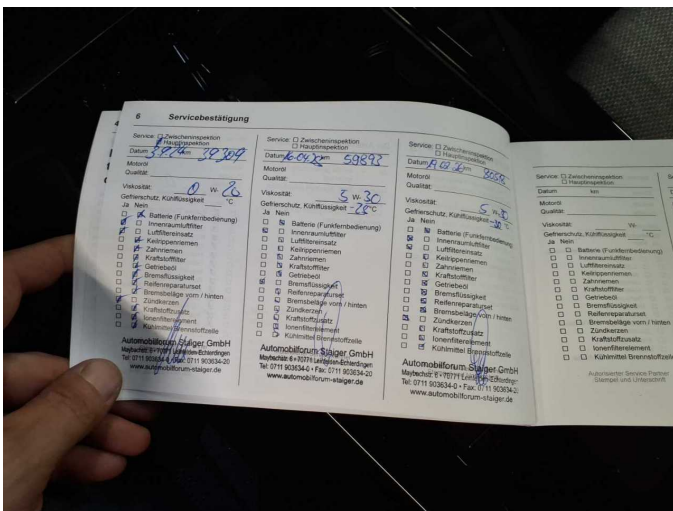 6 Servicebestätigung
Service: Zwischeninspektion
Hauptinspektion
Datum km 39309
Motoröl
Qualität:
Viskosität: 0 W- 20
Gefrierschutz, Kühlflüssigkeit °C
Ja Nein
Batterie (Funkfernbedienung)
Innenraumluftfilter
Luftfiltereinsatz
Keilrippenriemen
Zahnriemen
Kraftstofffilter
Getriebeöl
Bremsflüssigkeit
Reifenreparaturset
Bremsbeläge vorn / hinten
Zündkerzen
Kraftstoffzusatz
Ionenfilterelement
Kühlmittel Brennstoffzelle
Automobilforum Staiger GmbH
Maybachstr. 6 • 70771 Leinfelden-Echterdingen
Tel: 0711 903634-0 • Fax: 0711 903634-20
www.automobilforum-staiger.de
Service: Zwischeninspektion
Hauptinspektion
Datum km 59893
Motoröl
Qualität:
Viskosität: 5 W- 30
Gefrierschutz, Kühlflüssigkeit -28°C
Ja Nein
Batterie (Funkfernbedienung)
Innenraumluftfilter
Luftfiltereinsatz
Keilrippenriemen
Zahnriemen
Kraftstofffilter
Getriebeöl
Bremsflüssigkeit
Reifenreparaturset
Bremsbeläge vorn / hinten
Zündkerzen
Kraftstoffzusatz
Ionenfilterelement
Kühlmittel Brennstoffzelle
Automobilforum Staiger GmbH
Maybachstr. 6 • 70771 Leinfelden-Echterdingen
Tel: 0711 903634-0 • Fax: 0711 903634-20
www.automobilforum-staiger.de
Service: Zwischeninspektion
Hauptinspektion
Datum km
Motoröl
Qualität:
Viskosität: 5 W- 30
Gefrierschutz, Kühlflüssigkeit °C
Ja Nein
Batterie (Funkfernbedienung)
Innenraumluftfilter
Luftfiltereinsatz
Keilrippenriemen
Zahnriemen
Kraftstofffilter
Getriebeöl
Bremsflüssigkeit
Reifenreparaturset
Bremsbeläge vorn / hinten
Zündkerzen
Kraftstoffzusatz
Ionenfilterelement
Kühlmittel Brennstoffzelle
Automobilforum Staiger GmbH
Maybachstr. 6 • 70771 Leinfelden-Echterdingen
Tel: 0711 903634-0 • Fax: 0711 903634-20
www.automobilforum-staiger.de
Service: Zwischeninspektion
Hauptinspektion
Datum km
Motoröl
Qualität:
Viskosität: W-
Gefrierschutz, Kühlflüssigkeit °C
Ja Nein
Batterie (Funkfernbedienung)
Innenraumluftfilter
Luftfiltereinsatz
Keilrippenriemen
Zahnriemen
Kraftstofffilter
Getriebeöl
Bremsflüssigkeit
Reifenreparaturset
Bremsbeläge vorn / hinten
Zündkerzen
Kraftstoffzusatz
Ionenfilterelement
Kühlmittel Brennstoffzelle
Autorisierter Service-Partner
Stempel und Unterschrift